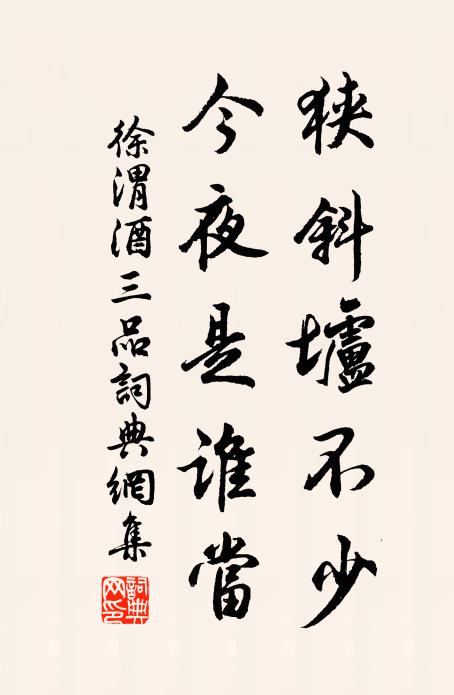 狹斜壚不少
今夜是誰當
徐渭酒三品詞典網集
詞典網印